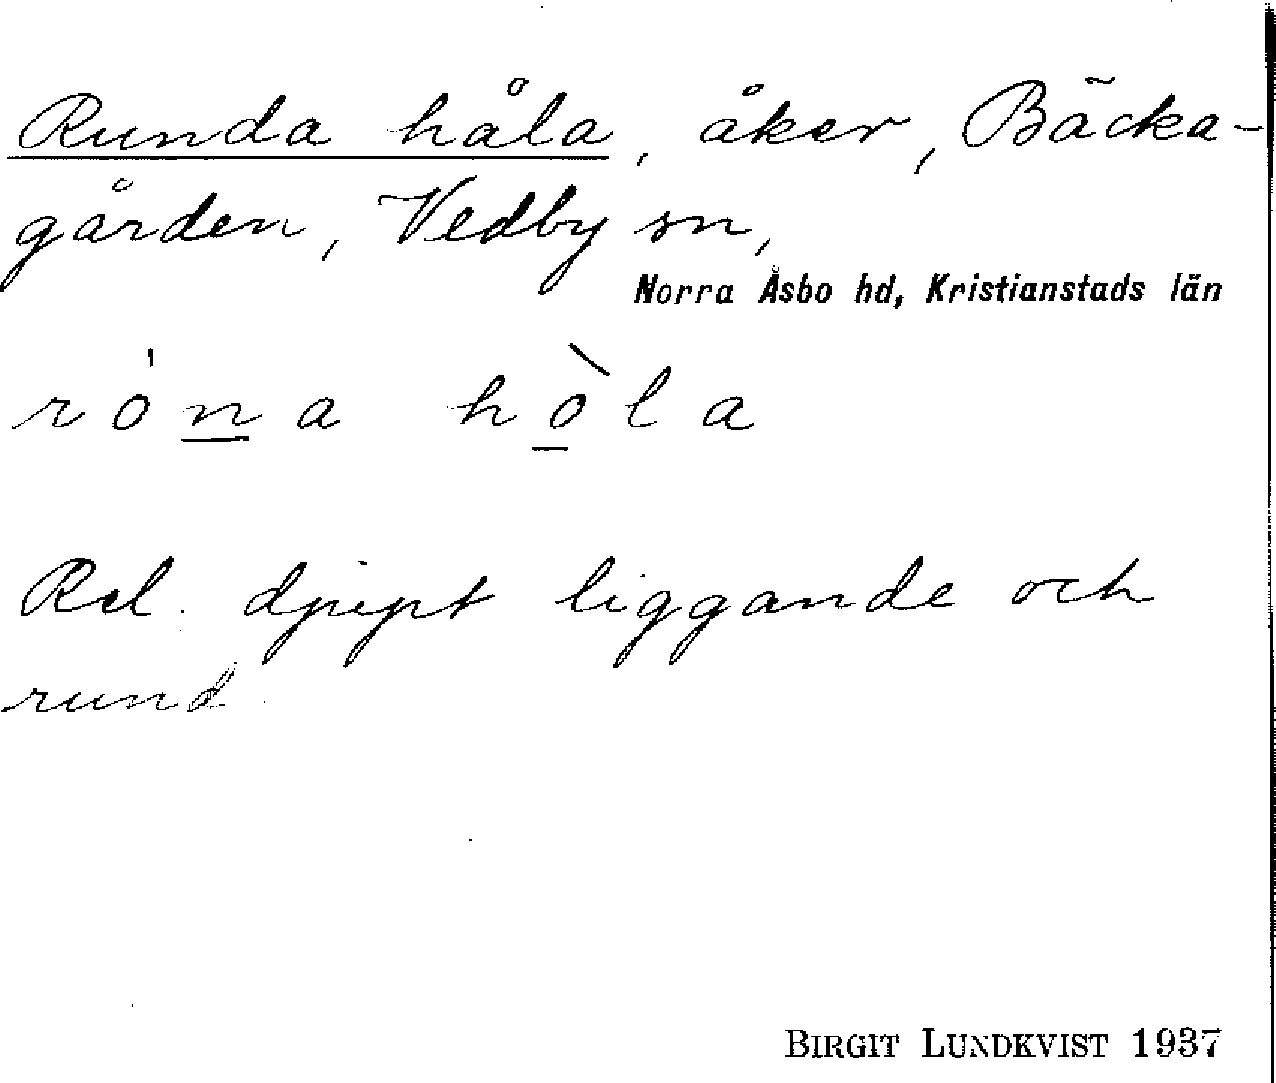 Runda håla, åker, Bäcka-
gården, Vedby sn,
Norra Åsbo hd, Kristianstads län
ró̍n̲a hò̲la
Rel. djupt liggande och
rund
BIRGIT LUNDKVIST 1937